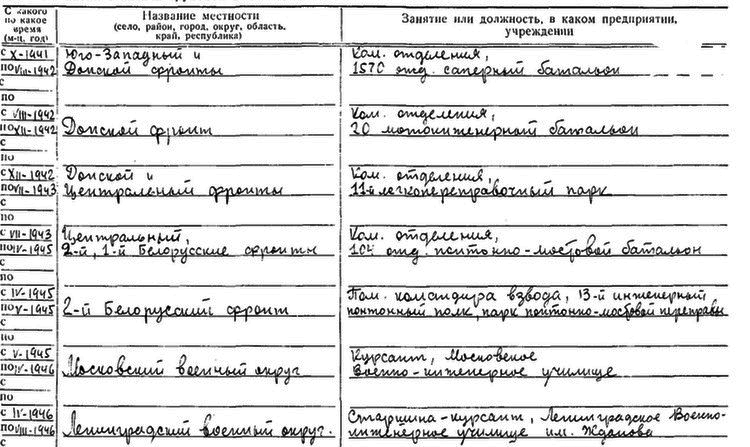 С какого
по какое
время
(м-ц, год)
Название местности
(село, район, город, округ, область,
край, республика)
Занятие или должность, в каком предприятии,
учреждении
с X-1941
Юго-Западный и
Ком. отделения,
по VIII-1942
Донской фронты
1570 отд. саперный батальон
с
по
с VIII-1942
Ком. отделения,
по XII-1942
Донской фронт
20 мотоинженерный батальон
с
по
с XII-1942
Донской и
Ком. отделения,
по VII-1943
Центральный фронты
11-й легкопереправочный парк
с
по
с VII-1943
Центральный,
Ком. отделения,
по IV-1945
2-й, 1-й Белорусские фронты
104 отд. понтонно-мостовой батальон
с
по
с IV-1945
Пом. командира взвода, 13-й инженерный
по V-1945
2-й Белорусский фронт
понтонный полк, парк понтонно-мостовой переправы
с
по
с V-1945
Курсант, Московское
по IV-1946
Московский военный округ
Военно-инженерное училище
с
по
с IV-1946
Старшина-курсант, Ленинградское Военно-
по VIII-1946
Ленинградский военный округ.
инженерное училище им. Жданова